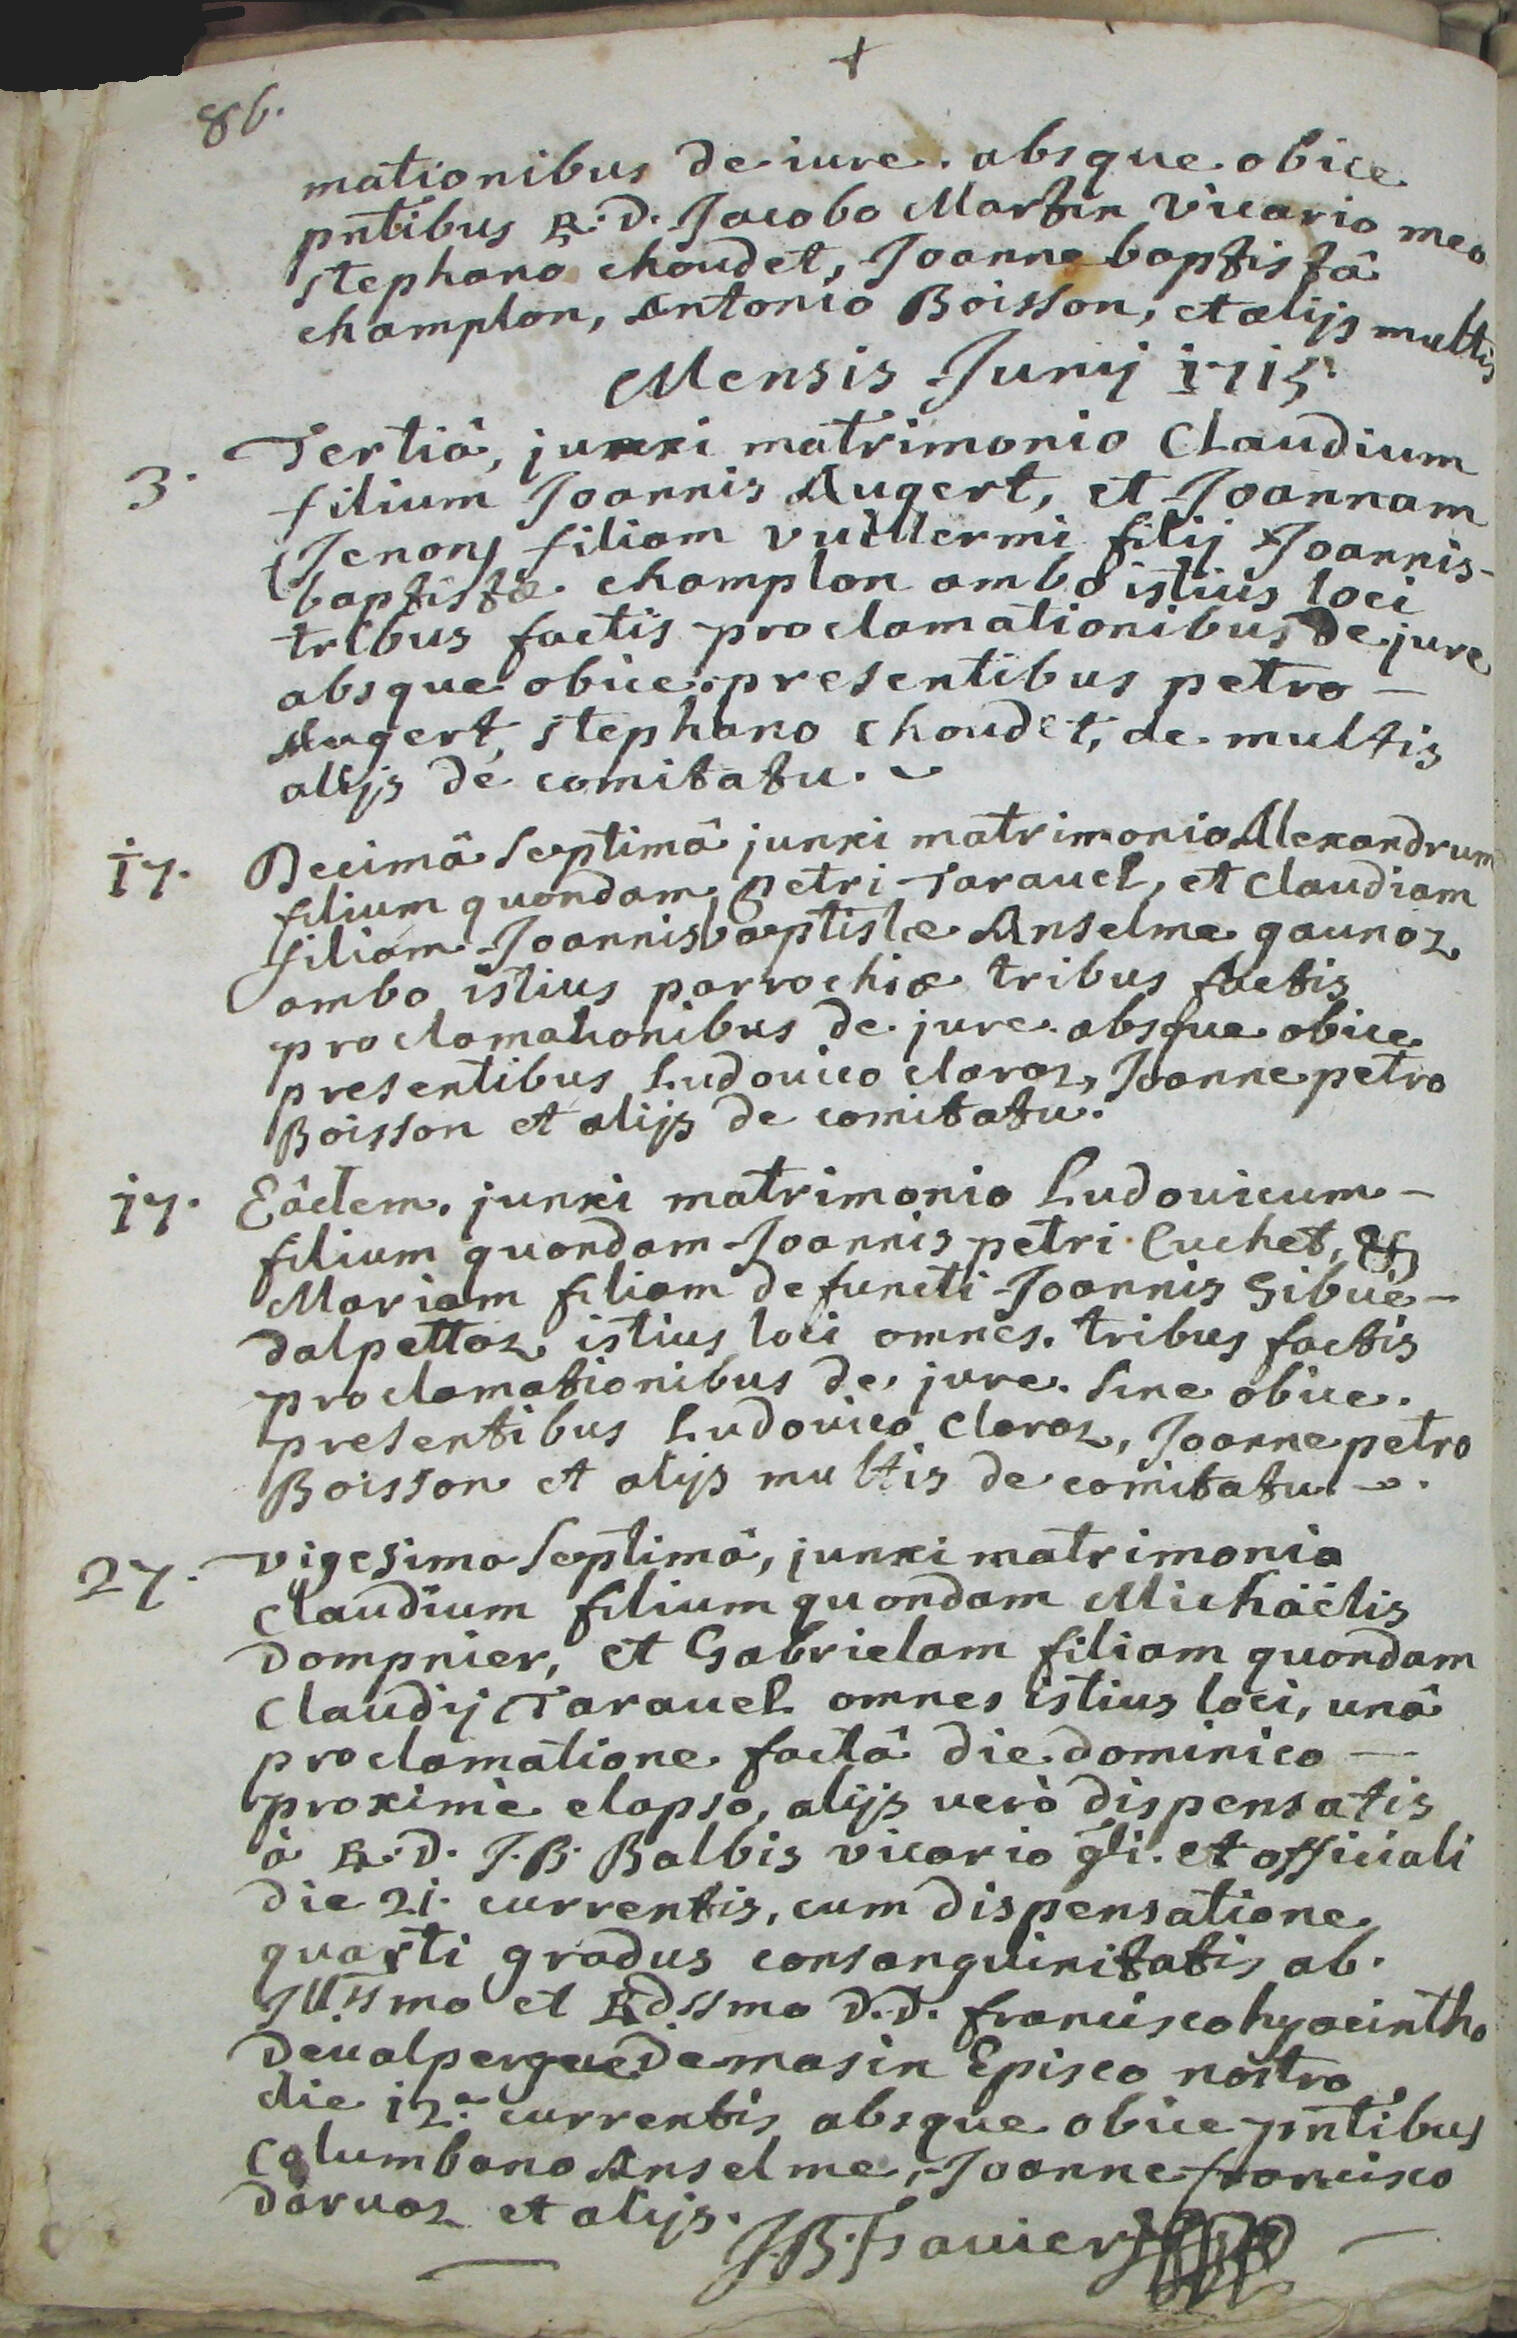 86.
mationibus de iure. absque obice
pntibus R.D. Jacobo Martin vicario meo
stephano choudet, Joanne baptistâ
champlon, Antonio Boisson, et alijs multis
Mensis Junij 1715
3. Tertiâ, junxi matrimonio Claudium
filium Joannis Augert, et Joannam
filiam vuillermi filij Joannis-
baptistæ champlon ambo istius loci
tribus factis proclamationibus de jure
absque obice. presentibus petro —
Augert, stephano choudet, ac multis
alijs de comitatu.
17. Decimâ septimâ junxi matrimonio Alexandrum
filium quondam petri Tarauel, et claudiam
filiam Joannisbaptistæ Anselme gaunoz
ambo istius parrochiæ tribus factis
proclamationibus de jure absque obice
presentibus Ludouico claraz, Joanne petro
Boisson et alijs de comitatu.
17. Eâdem. junxi matrimonio Ludouicum —
filium quondam Joannis petri Cuchet, &
Mariam filiam defuncti Joannis Gibue —
dalpettaz istius loci omnes. tribus factis
proclamationibus de jure. sine obice.
presentibus Ludouico claraz, Joanne petro
Boisson et alijs multis de comitatu.
27. vigesima septimâ, junxi matrimonio
claudium filium quondam Michäelis
Dompnier, et Gabrielam filiam quondam
Claudij Tarauel omnes istius loci, unâ
proclamatione factâ die dominico —
proximè elapso, alijs uerò dispensatis
à R.D. J.B. Balbis vicario gli. et officiali
die 21. currentis, cum dispensatione
quarti gradus consanguinitatis ab.
Illssmo et Rdssmo D.D. francisco hyacintho
Deualpergue Demasin Episco nostro
die 12.a currentis absque obice pntibus
Columbano Anselme, Joanne francisco
daruaz et alijs.